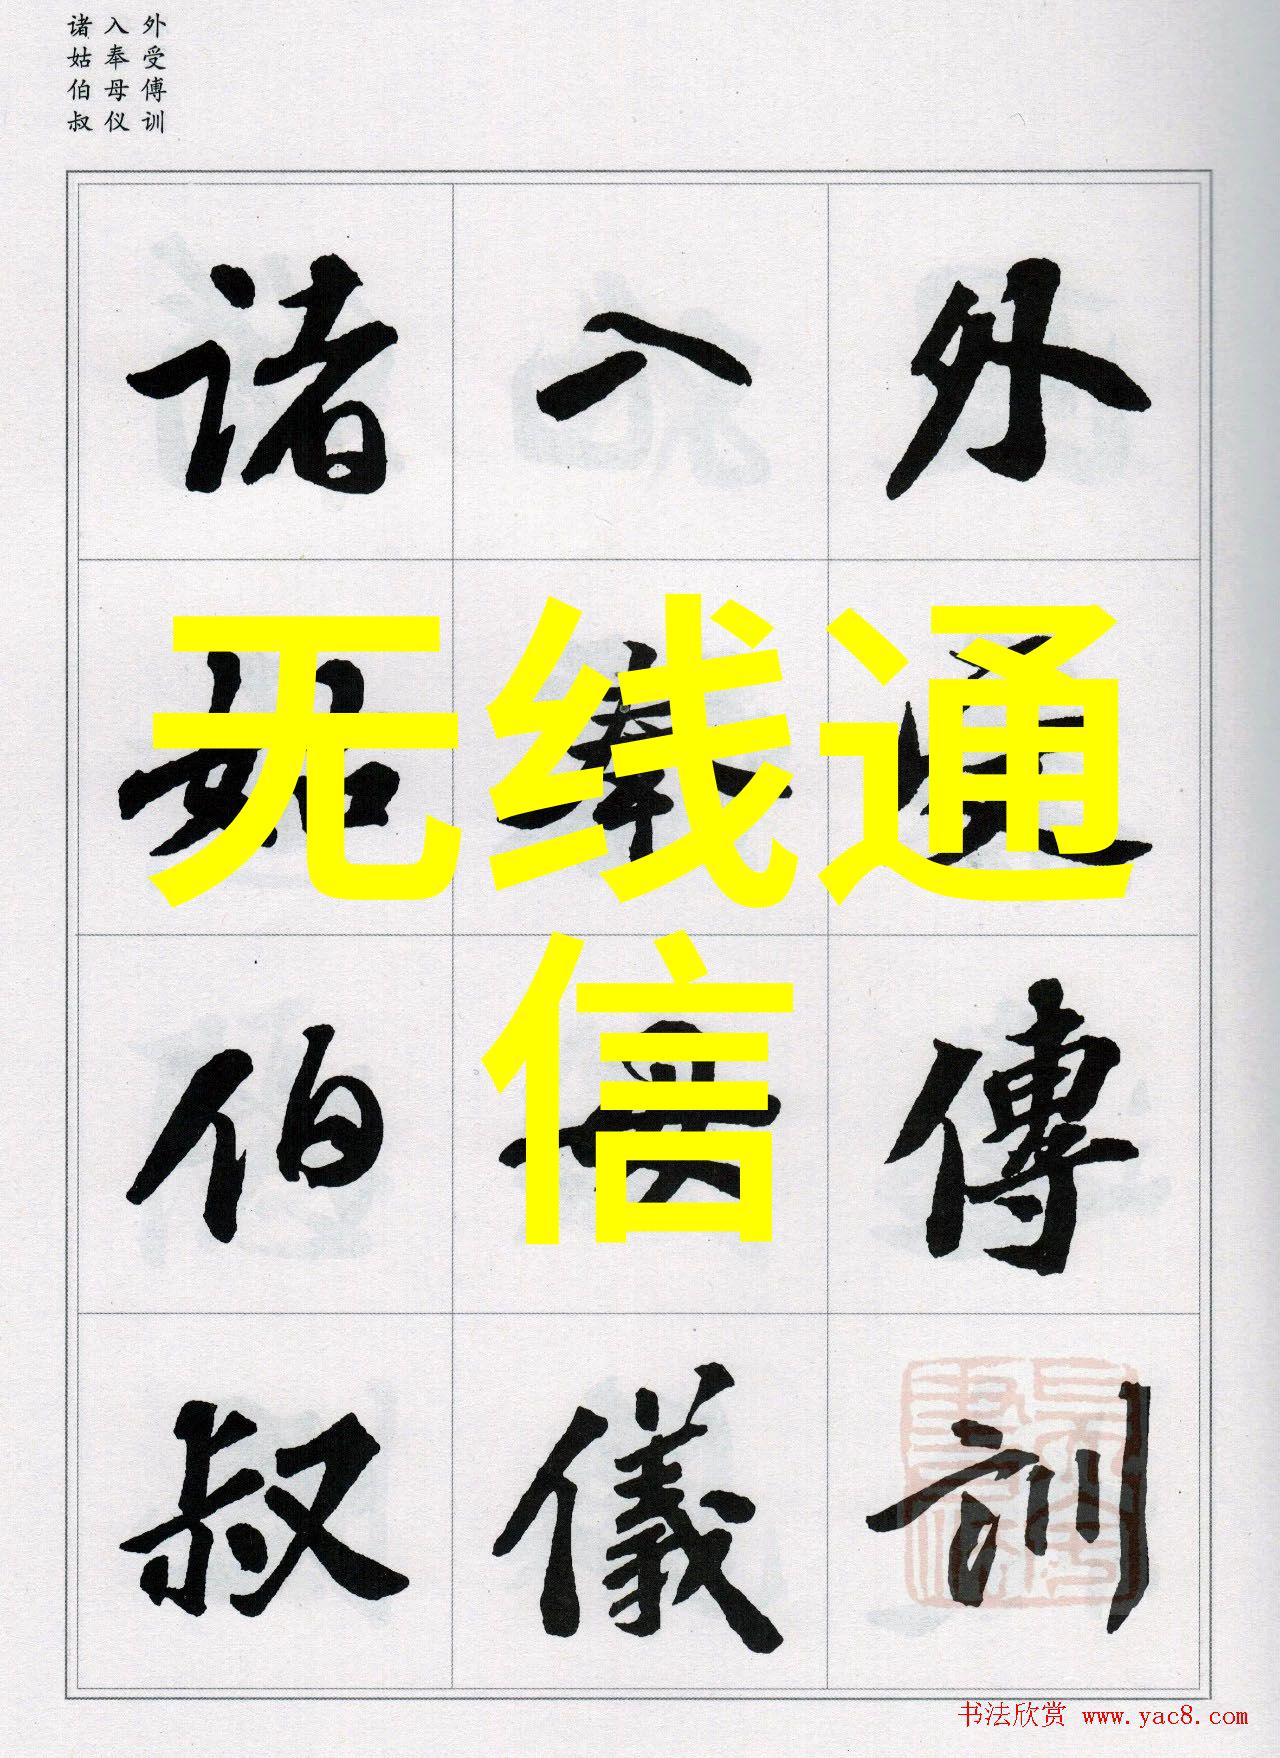 外受傅训
入奉母仪
诸姑伯叔
外受傅訓
入奉母儀
诸姑伯叔
无线通
信
书法欣赏 www.yac8.com